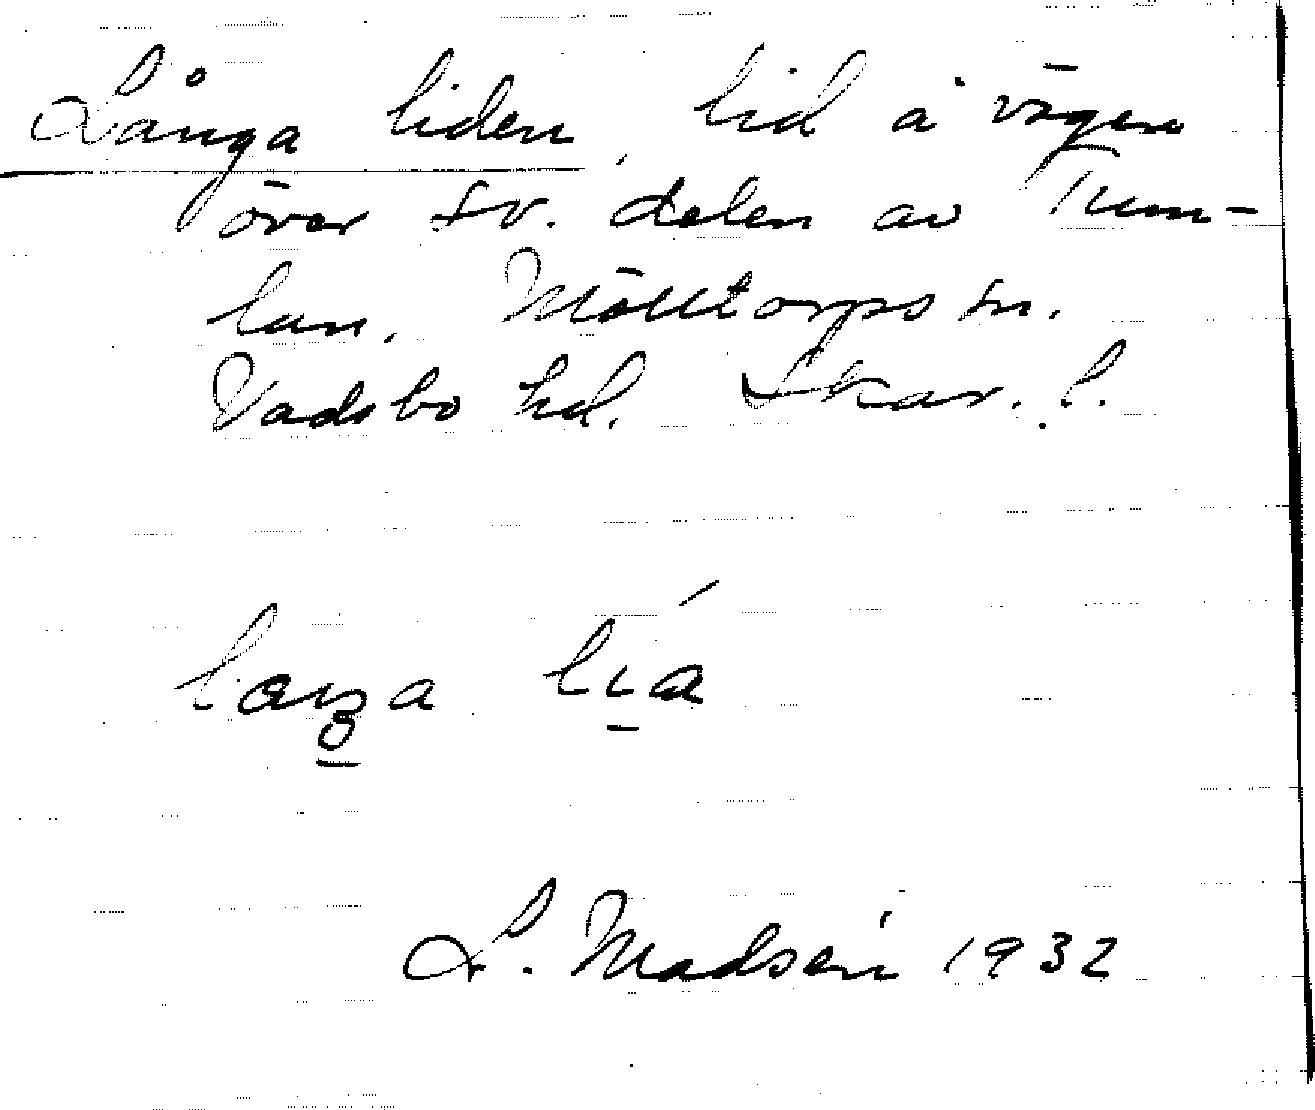 Långa liden, lid å vägen
över sv. delen av Tum-
lan. Mölltorps sn.
Vadsbo hd. Skar. l.
lia
L. Madsén 1932